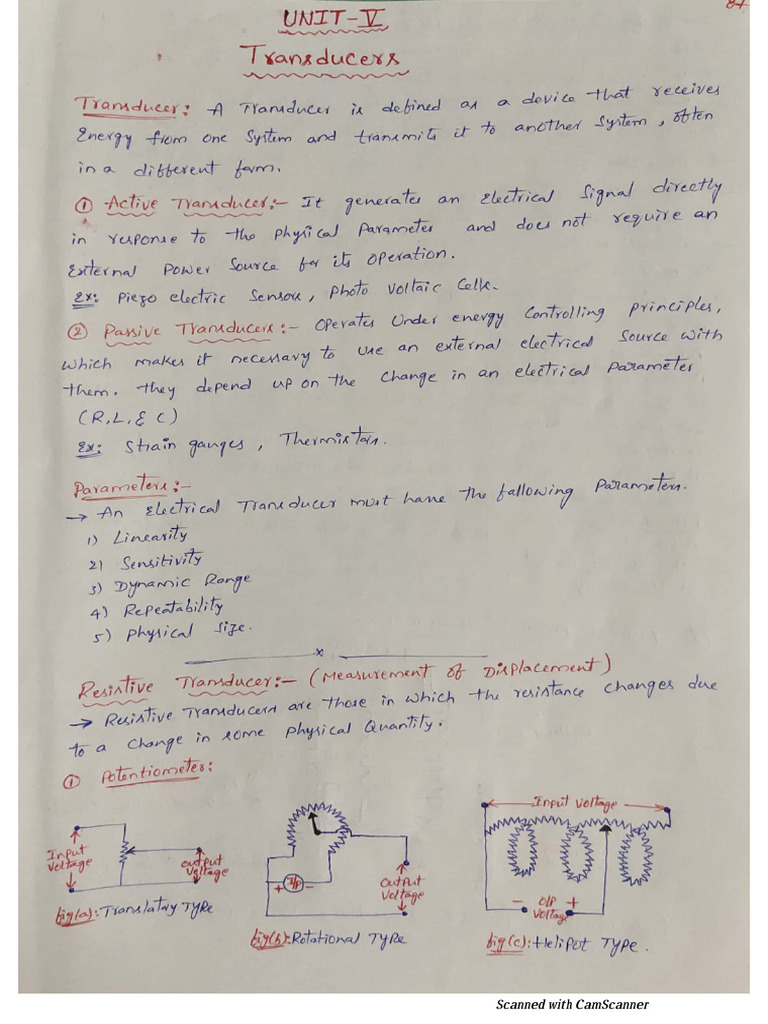 87
UNIT-V
Transducers
Transducer: A Transducer is defined as a device that receives
Energy from one System and transmits it to another System, often
in a different form.
① Active Transducer:- It generates an Electrical Signal directly
in response to the Physical Parameter and does not require an
External Power Source for its operation.
Ex: Piezo electric Sensors, Photo Voltaic Cells.
② Passive Transducers:- Operates Under energy Controlling Principles,
which makes it necessary to Use an external electrical Source with
them. They depend up on the Change in an electrical Parameter
(R,L,& C)
Ex: Strain gauges, Thermistors.
Parameters:-
→ An Electrical Transducer must have the following Parameters.
1) Linearity
2) Sensitivity
3) Dynamic Range
4) Repeatability
5) Physical Size.
x
Resistive Transducer:- (Measurement of Displacement)
→ Resistive Transducers are those in which the resistance changes due
to a change in some Physical Quantity.
① Potentiometer:
Input Voltage
Input
Voltage
Output
Voltage
+ I/P -
Output
Voltage
- O/P +
Voltage
fig(a): Translatry Type
fig(b): Rotational Type
fig(c): Helipot Type.
Scanned with CamScanner